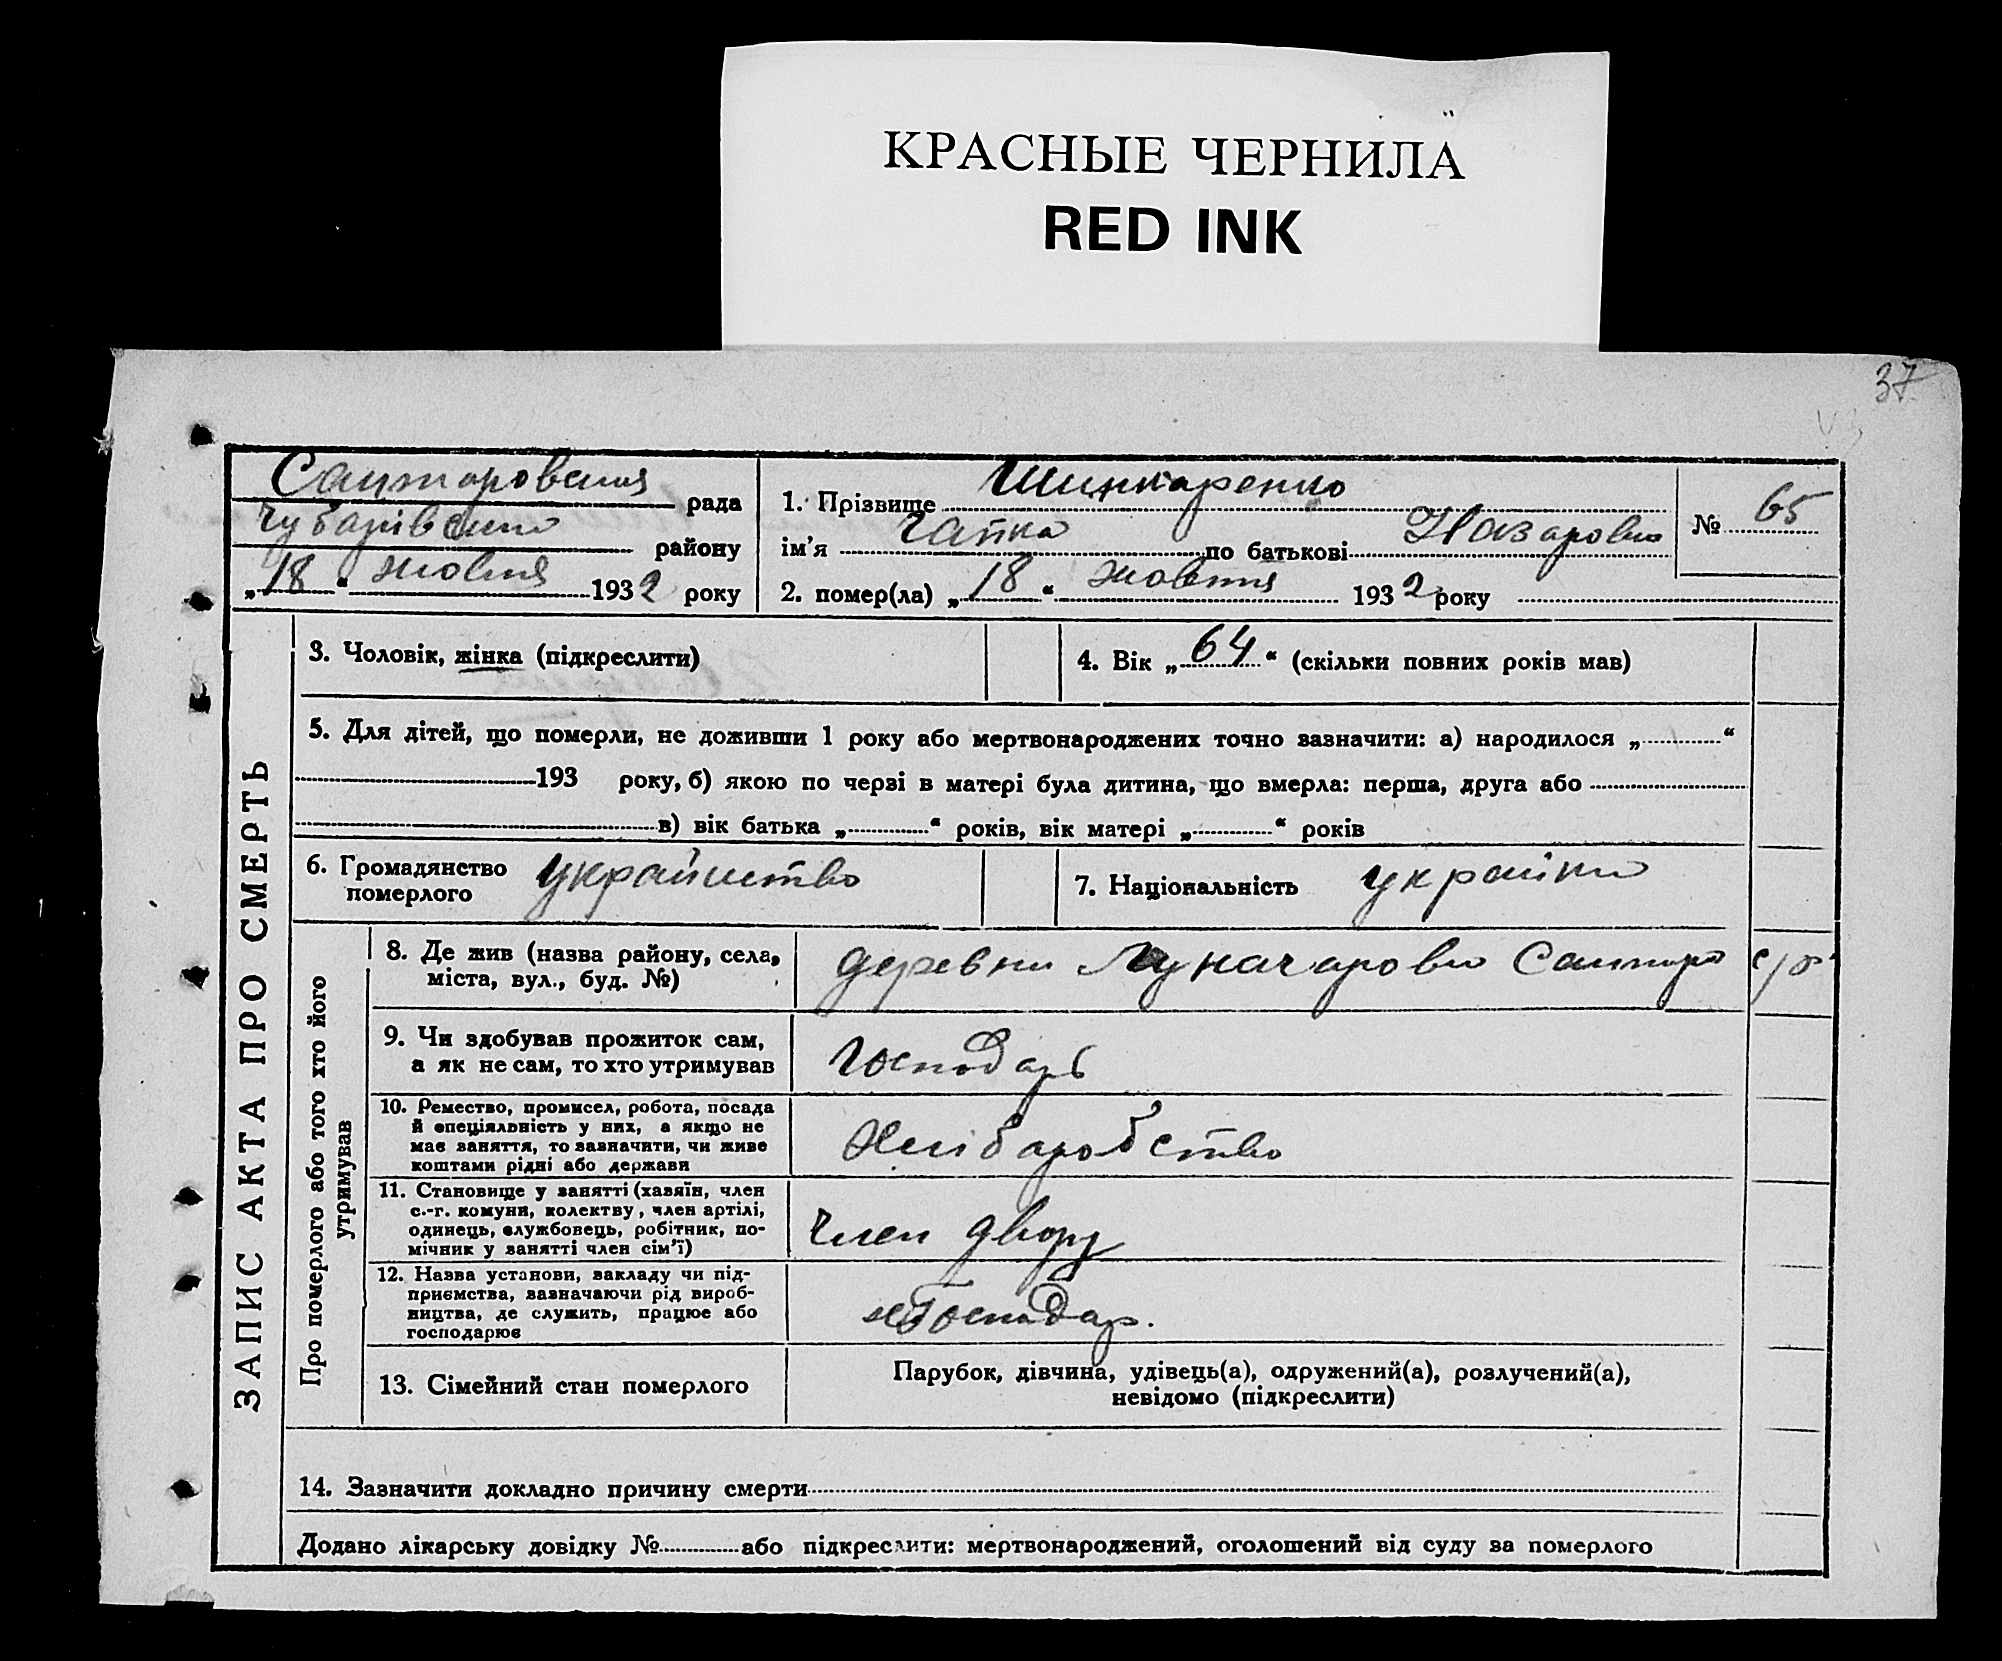 КРАСНЫЕ ЧЕРНИЛА
RED INK
37
рада
Чубарівського району
„18“ жовтня 1932 року
1. Прізвище Шинкаренко
ім’я Гапка по батькові Назаровна
№ 65
2. помер(ла) „18“ жовтня 1932 року
ЗАПИС АКТА ПРО СМЕРТЬ
3. Чоловік, жінка (підкреслити)
4. Вік „64“ (скільки повних років мав)
5. Для дітей, що померли, не доживши 1 року або мертвонароджених точно зазначити: а) народилося „ “
193 року, б) якою по черзі в матері була дитина, що вмерла: перша, друга або
в) вік батька „ “ років, вік матері „ “ років
6. Громадянство
померлого
7. Національність
Про померлого або того хто його
утримував
8. Де жив (назва району, села,
міста, вул., буд. №)
деревни с/р
9. Чи здобував прожиток сам,
а як не сам, то хто утримував
Господарь
10. Ремество, промисел, робота, посада
й спеціяльність у них, а якщо не
має заняття, то зазначити, чи живе
коштами рідні або держави
Хліборобство
11. Становище у занятті (хазяїн, член
с.-г. комуни, колективу, член артілі,
одинець, службовець, робітник, по-
мічник у занятті член сім’ї)
Член двору
12. Назва установи, закладу чи під-
приємства, зазначаючи рід вироб-
ництва, де служить, працює або
господарює
Господар.
13. Сімейний стан померлого
Парубок, дівчина, удівець(а), одружений(а), розлучений(а),
невідомо (підкреслити)
14. Зазначити докладно причину смерти
Додано лікарську довідку № або підкреслити: мертвонароджений, оголошений від суду за померлого